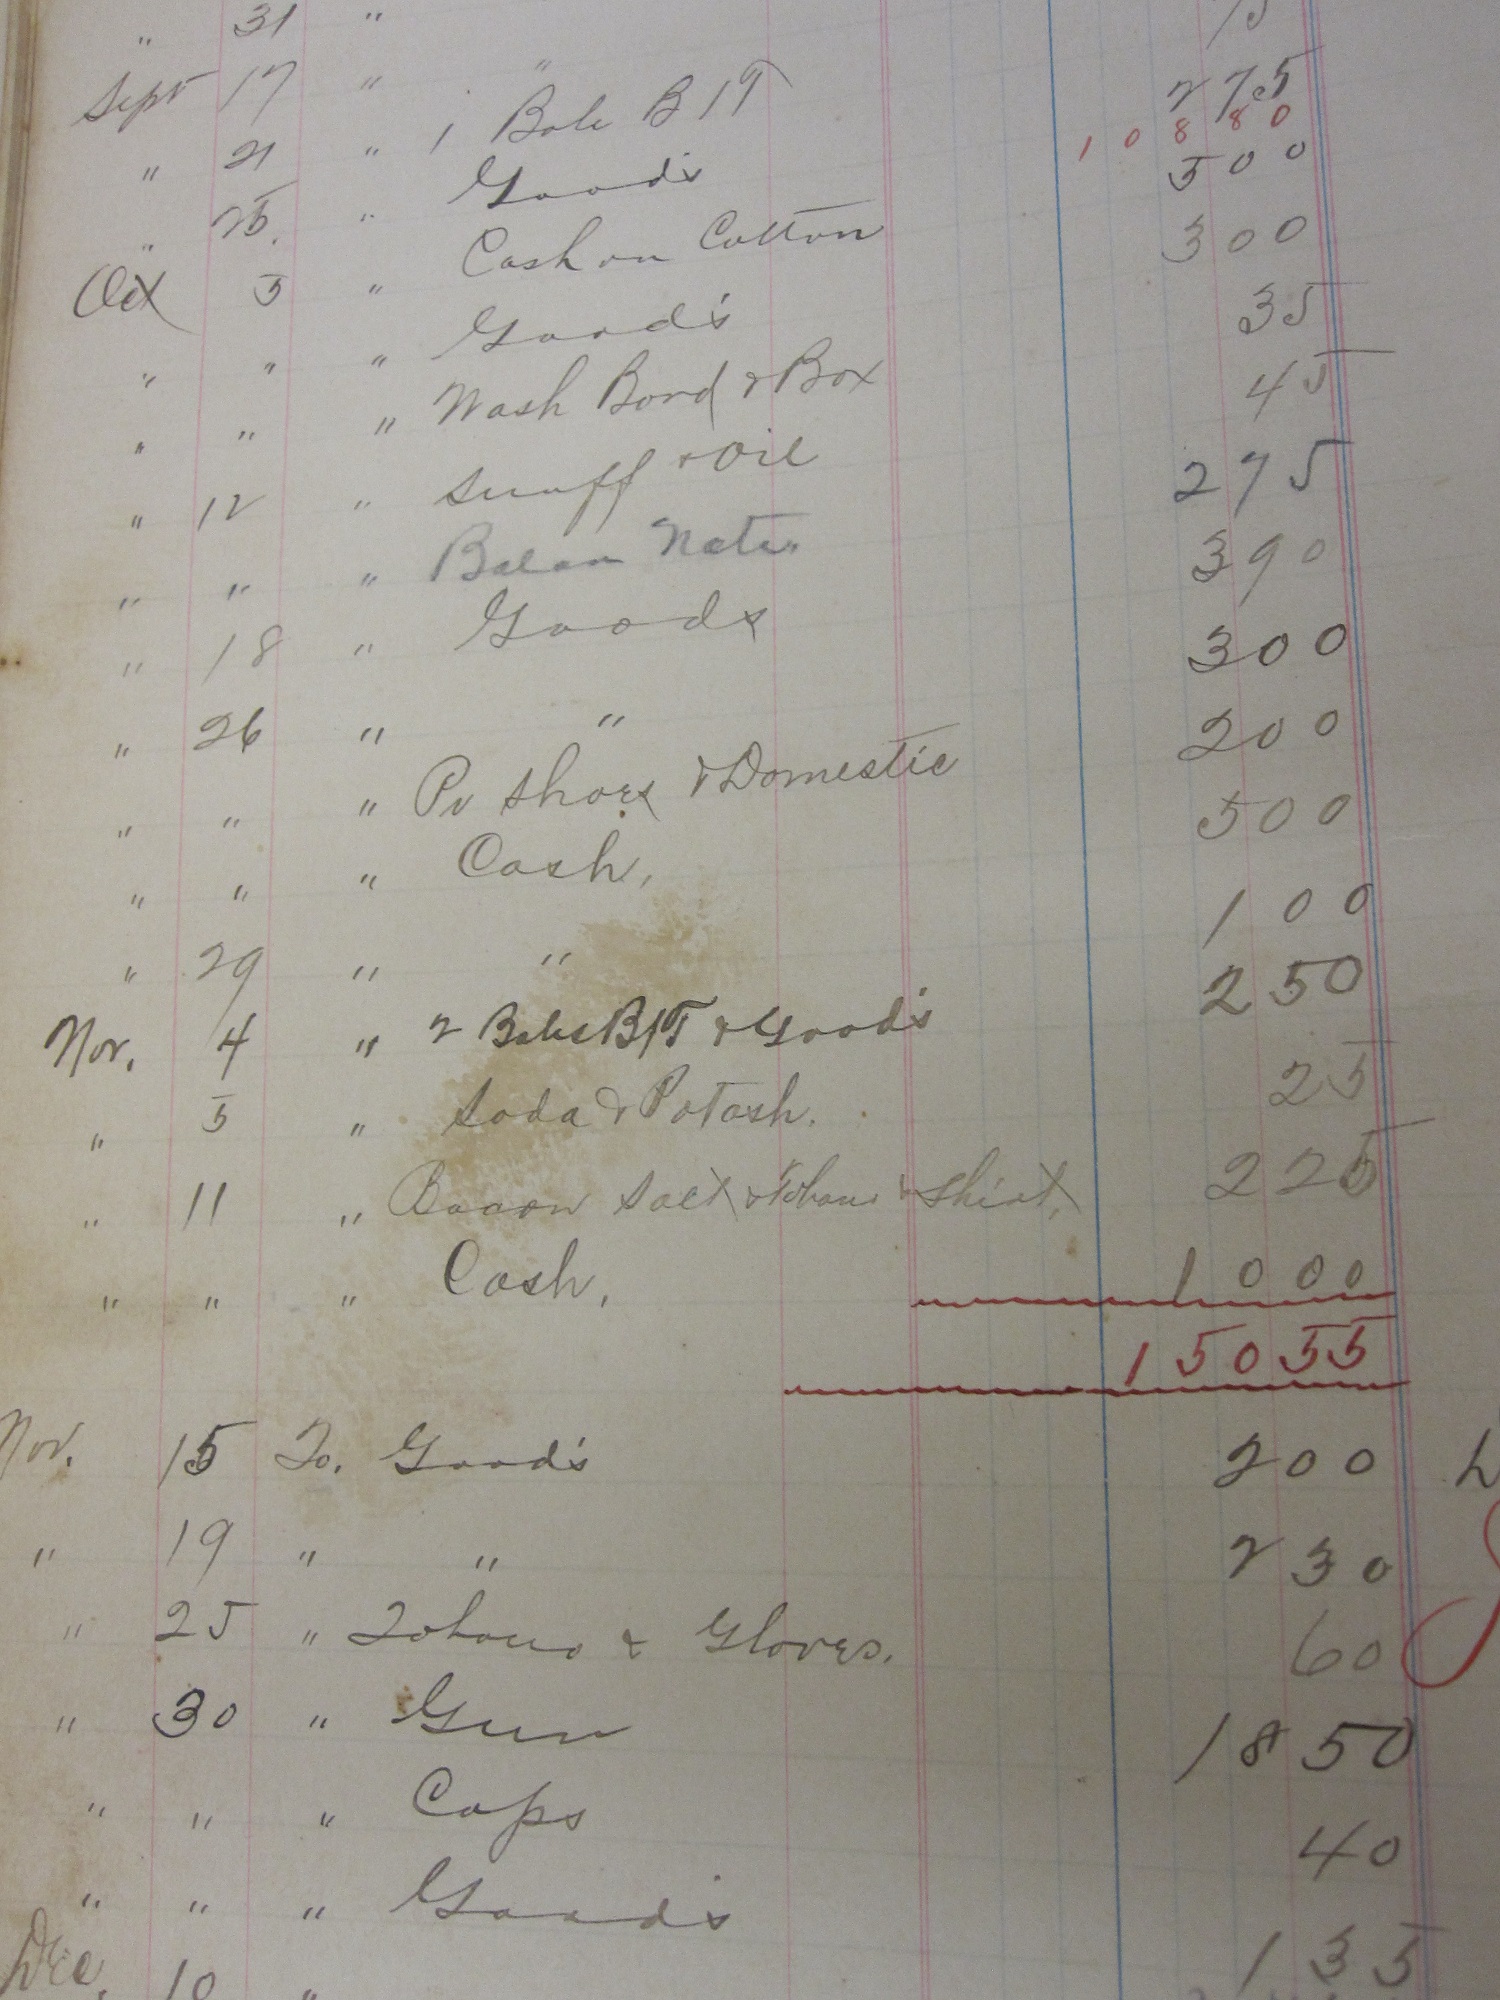 " 31 " 75
Sept 17 " " 2 75
1 08 80
" 21 " 1 Bale B 1T 5 00
" 25. " Goods 3 00
Oct 5 " Cash on Cotton 35
" " " Goods 45
" " " Wash Bord & Box 2 75
" 12 " Snuff & Oil 3 90
" " " Balan Note 3 00
" 18 " Goods 2 00
" 26 " " 5 00
" " " Pr Shoes & Domestic 1 00
" " " Cash, 2 50
" 29 " " 25
Nov. 4 " 2 Bales B/T & Goods 2 25
" 5 " Soda & Potash. 10 00
" 11 " Bacon Salt & Tobaco & Shirt,
" " " Cash,
150 55
Nov. 15 To. Goods 2 00
" 19 " " 2 30
" 25 " Tobacco & Gloves. 60
" 30 " Gun 18 50
" " " Caps 40
" " " Goods 1 35
Dec. 10 "